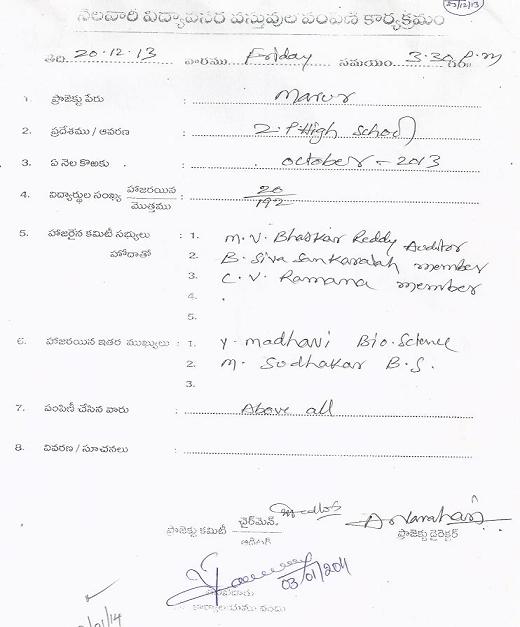 25/12/13
నెలవారి విద్యావసర వస్తువుల పంపిణీ కార్యక్రమం
తేది. 20.12.13 వారము Friday సమయం 3.30 P.m
1. ప్రాజెక్టు పేరు : Marur
2. ప్రదేశము / ఆవరణ : Z.P High School
3. ఏ నెల కొఱకు : October - 2013
4. విద్యార్థుల సంఖ్య హాజరయిన / మొత్తము : 20 / 192
5. హాజరైన కమిటీ సభ్యులు : 1. M.V. Bhaskar Reddy Auditor
హోదాతో 2. B. Siva Sankaraiah member
3. C.V. Ramana member
4.
5.
6. హాజరయిన ఇతర ముఖ్యులు : 1. Y. madhavi Bio.Science
2. M. Sudhakar B.S.
3.
7. పంపిణీ చేసిన వారు : Above all
8. వివరణ / సూచనలు :
ప్రాజెక్టు కమిటీ చైర్‌మెన్ / ఆడిటర్
ప్రాజెక్టు డైరెక్టర్